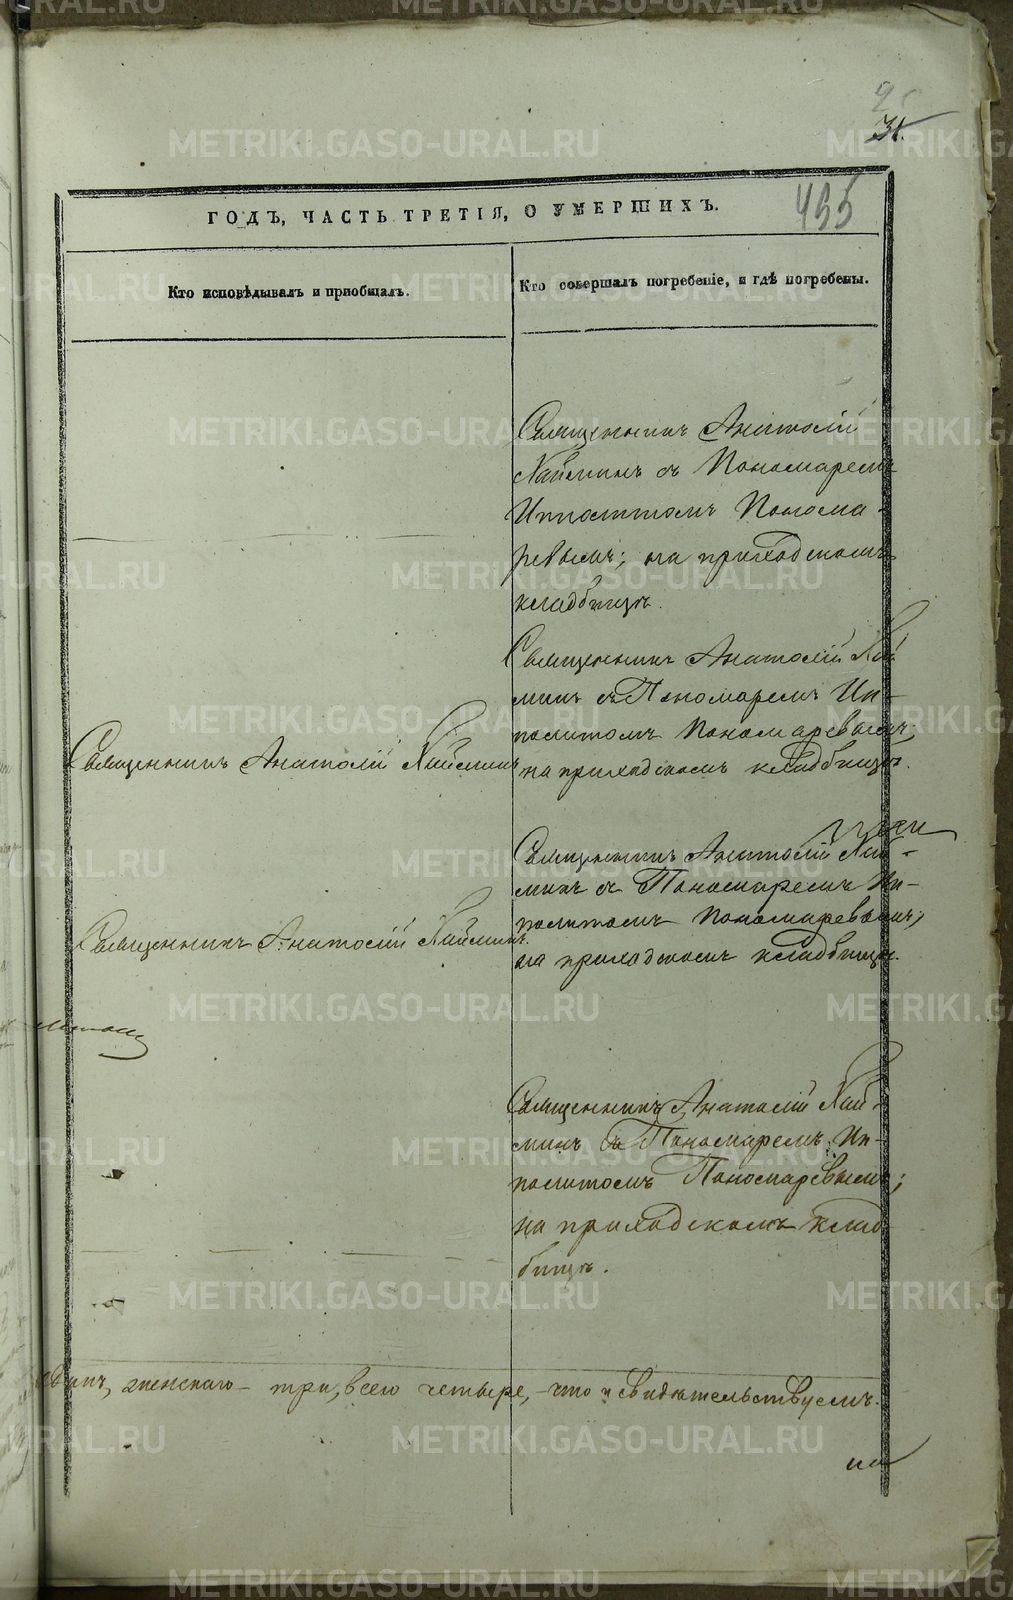 31.
495
ГОДЪ, ЧАСТЬ ТРЕТІЯ, О УМЕРШИХЪ.
Кто исповѣдывалъ и приобщалъ.
Кто совершалъ погребеніе, и гдѣ погребены.
Священникъ Анатолій
Хайминъ съ Пономаремъ
Ипполитомъ Понома-
ревымъ; на приходскомъ
кладбищѣ.
Священникъ Анатолій Хай
минъ съ Пономаремъ Ип-
политомъ Пономаревымъ;
на приходскомъ кладбищѣ.
Священникъ Анатолій Хайминъ
Священникъ Анатолій Хай-
минъ съ Пономаремъ Ип-
политомъ Пономаревымъ;
на приходскомъ кладбищѣ.
Священникъ Анатолій Хайминъ.
Священникъ Анатолій Хай-
минъ съ Пономаремъ Ип-
политомъ Пономаревымъ;
на приходскомъ клад-
бищѣ.
одинъ, женскаго – три, всего четыре, – что и свидѣтельствуемъ.
METRIKI.GASO-URAL.RU